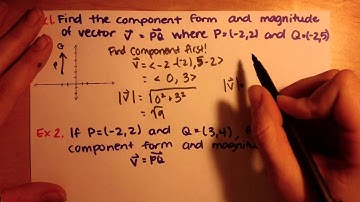 Ex1. Find the component form and magnitude
of vector v = PQ where P=(-2,2) and Q=(-2,5)
Find Component first!
Q
P
v = <-2-(-2), 5-2>
= <0, 3>
|v| = √0²+3²
= √9
|v|
Ex 2. If P=(-2,2) and Q=(3,4),
component form and magnitu
v = PQ